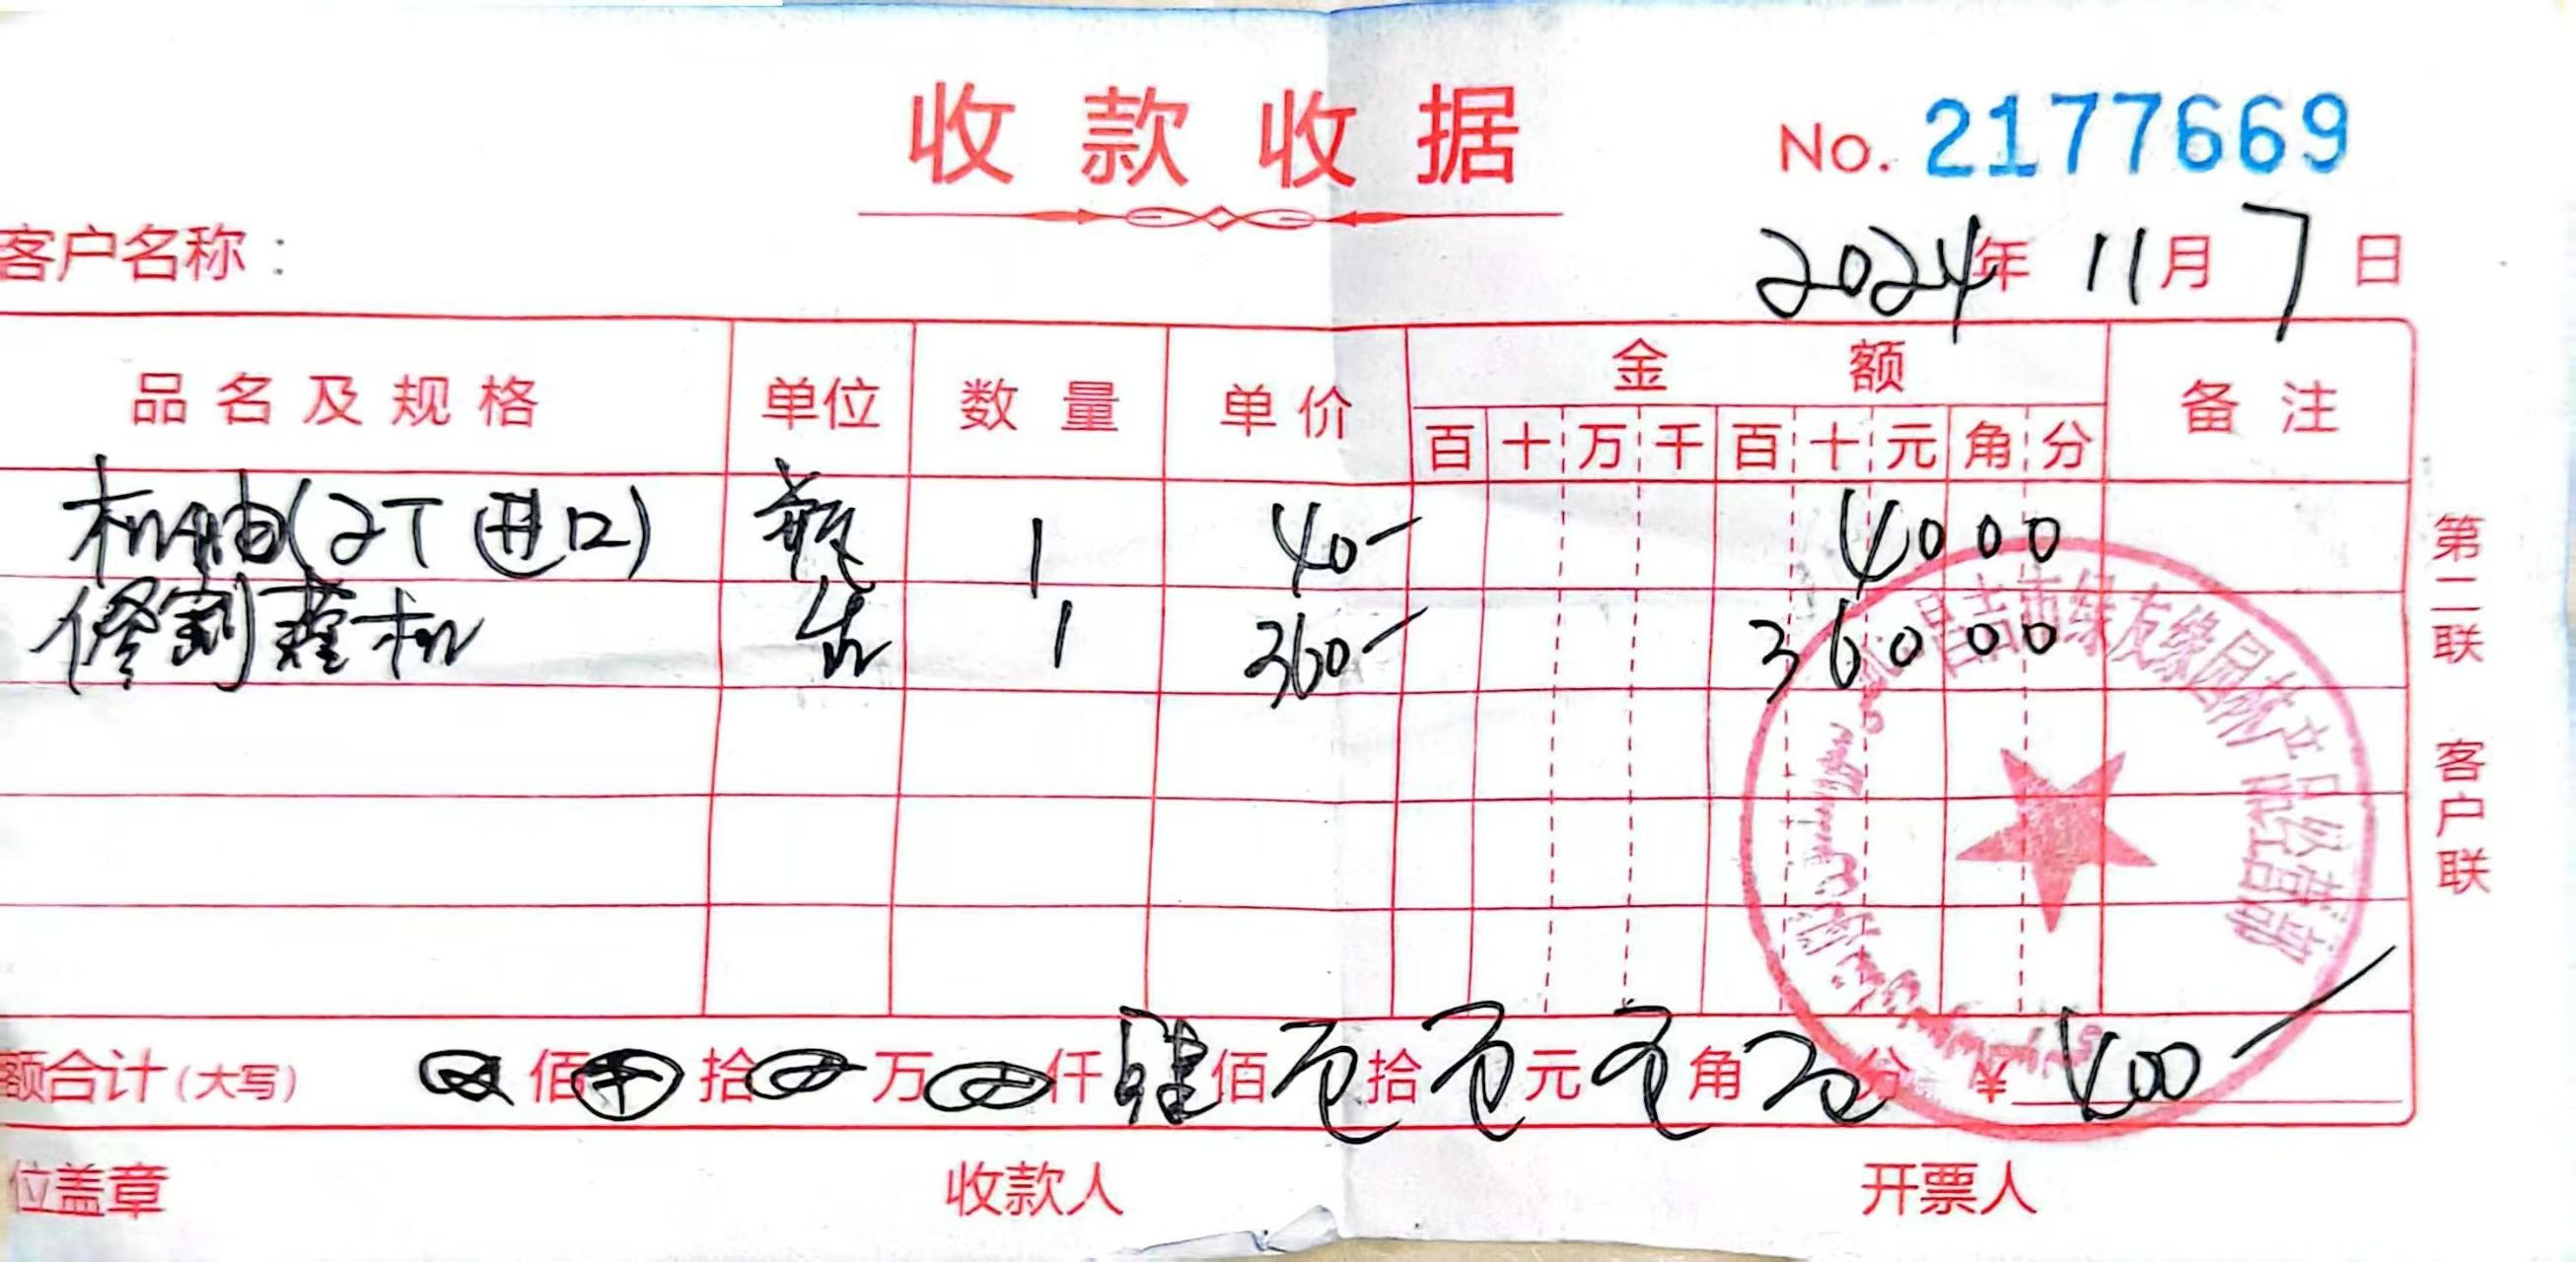 收款收据
No. 2177669
客户名称：
2024年 11月 7日
品名及规格 单位 数量 单价 金额 备注
百 十 万 千 百 十 元 角 分
机油(2T 进口) 瓶 1 40- 4000
修割灌机 台 1 360- 36000
额合计(大写) 佰 拾 万 仟 肆佰 零拾 零元 零角 零分 ¥ 400-
位盖章 收款人 开票人
第二联 客户联
昌吉市绿友缘园林产品经营部